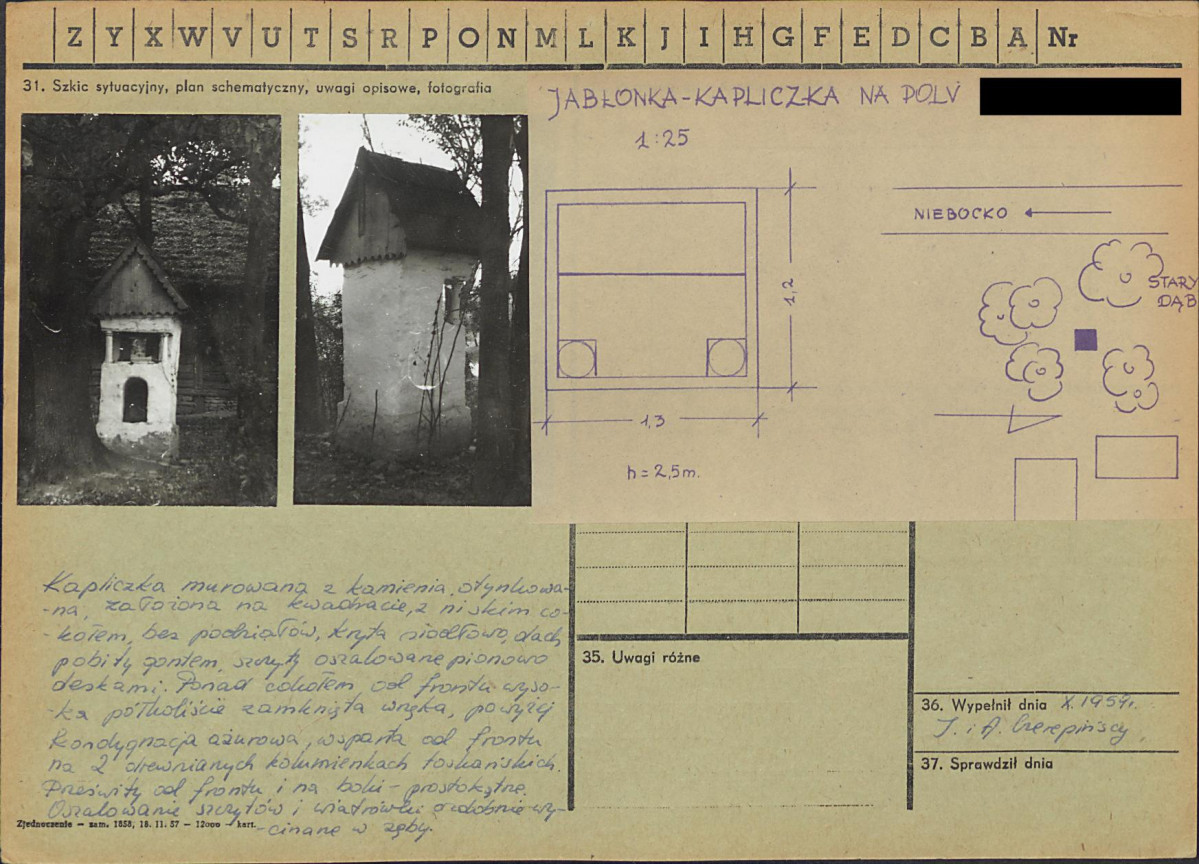 Z Y X W V U T S R P O N M L K J I H G F E D C B A Nr
31. Szkic sytuacyjny, plan schematyczny, uwagi opisowe, fotografia
JABŁONKA-KAPLICZKA NA POLU
1:25
NIEBOCKO
STARY
DĄB
1,2
1,3
h=2,5m.
Kapliczka murowana z kamienia, otynkowa-
-na, założona na kwadracie, z niskim co-
-kołem, bez podziałów, kryta siodłowo, dach
pobity gontem, szczyty oszalowane pionowo
deskami. Ponad cokołem od frontu wyso-
-ka półkoliście zamknięta wnęka, powyżej
kondygnacja ażurowa, wsparta od frontu
na 2 drewnianych kolumienkach toskańskich.
Prześwity od frontu i na boki - prostokątne.
Oszalowanie szczytów i wiatrówki ozdobnie wy-
-cinane w zęby.
35. Uwagi różne
36. Wypełnił dnia X.1959r.
J. i A. Czerepińscy
37. Sprawdził dnia
Zjednoczenie — zam. 1858, 18. 11. 57 — 12000 — kart.